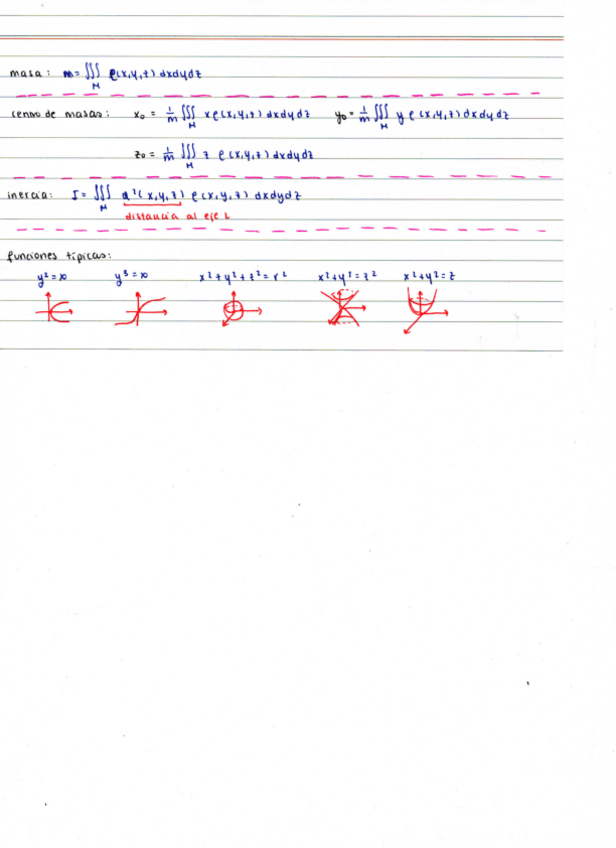 masa: m= ∭_M ρ(x,y,z) dxdydz
centro de masas: x₀ = 1/m ∭_M xρ(x,y,z) dxdydz y₀ = 1/m ∭_M yρ(x,y,z) dxdydz
z₀ = 1/m ∭_M z ρ(x,y,z) dxdydz
inercia: I = ∭_M d²(x,y,z) ρ(x,y,z) dxdydz
distancia al eje L
funciones típicas:
y²=x y³=x x²+y²+z²=r² x²+y²=z² x²+y²=z